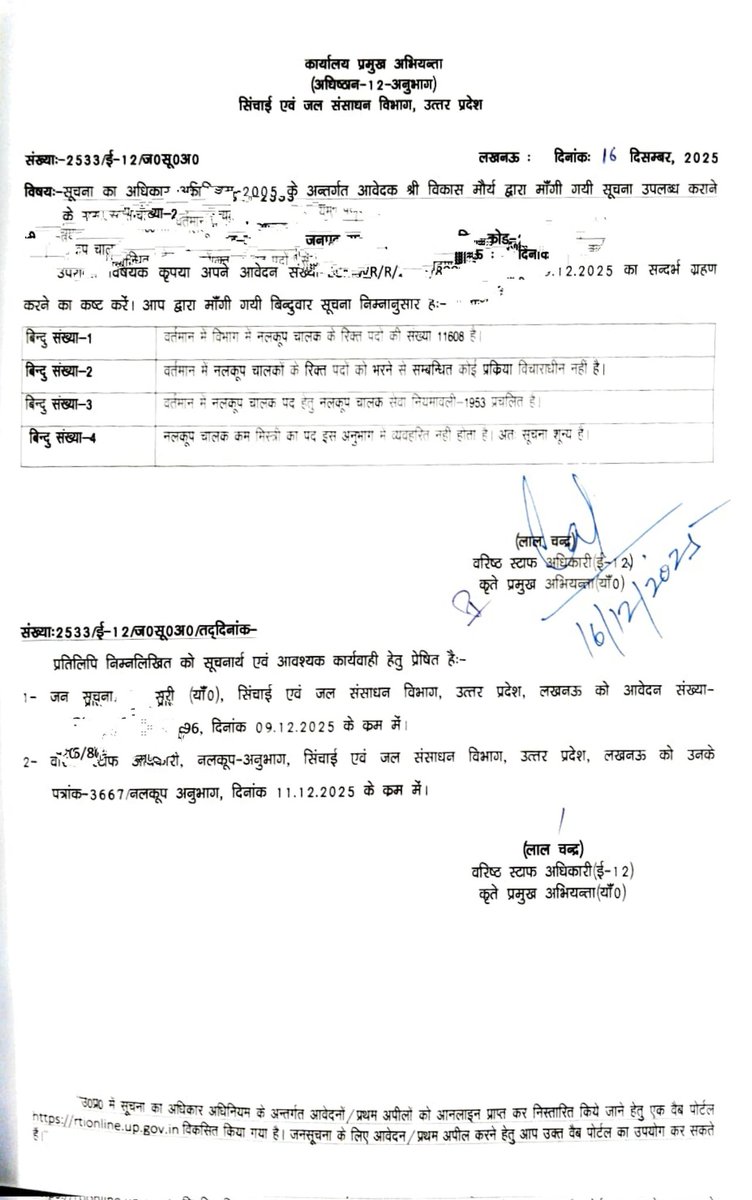 कार्यालय प्रमुख अभियन्ता
(अधिष्ठान-12-अनुभाग)
सिंचाई एवं जल संसाधन विभाग, उत्तर प्रदेश
संख्याः-2533/ई-12/ज0सू0अ0 लखनऊ : दिनांकः 16 दिसम्बर, 2025
विषयः-सूचना का अधिकार 2005 के अन्तर्गत आवेदक श्री विकास मौर्य द्वारा माँगी गयी सूचना उपलब्ध कराने
के
विषयक कृपया अपने आवेदन .12.2025 का सन्दर्भ ग्रहण
करने का कष्ट करें। आप द्वारा माँगी गयी बिन्दुवार सूचना निम्नानुसार हैः-
बिन्दु संख्या-1 वर्तमान में विभाग में नलकूप चालक के रिक्त पदों की संख्या 11608 है।
बिन्दु संख्या-2 वर्तमान में नलकूप चालकों के रिक्त पदों को भरने से सम्बन्धित कोई प्रक्रिया विचाराधीन नहीं है।
बिन्दु संख्या-3 वर्तमान में नलकूप चालक पद हेतु नलकूप चालक सेवा नियमावली-1953 प्रचलित है।
बिन्दु संख्या-4 नलकूप चालक कम मिस्त्री का पद इस अनुभाग में व्यवहरित नहीं होता है। अतः सूचना शून्य है।
(लाल चन्द्र)
वरिष्ठ स्टाफ अधिकारी(ई-12)
कृते प्रमुख अभियन्ता(याँ0)
16/12/2025
संख्याः2533/ई-12/ज0सू0अ0/तद्दिनांक-
प्रतिलिपि निम्नलिखित को सूचनार्थ एवं आवश्यक कार्यवाही हेतु प्रेषित हैः-
1- जन (याँ0), सिंचाई एवं जल संसाधन विभाग, उत्तर प्रदेश, लखनऊ को आवेदन संख्या-
96, दिनांक 09.12.2025 के कम में।
2- नलकूप-अनुभाग, सिंचाई एवं जल संसाधन विभाग, उत्तर प्रदेश, लखनऊ को उनके
पत्रांक-3667/नलकूप अनुभाग, दिनांक 11.12.2025 के कम में।
(लाल चन्द्र)
वरिष्ठ स्टाफ अधिकारी(ई-12)
कृते प्रमुख अभियन्ता(याँ0)
उ0प्र0 में सूचना का अधिकार अधिनियम के अन्तर्गत आवेदनों/प्रथम अपीलों को आनलाइन प्राप्त कर निस्तारित किये जाने हेतु एक वैब पोर्टल
https://rtionline.up.gov.in विकसित किया गया है। जनसूचना के लिए आवेदन/प्रथम अपील करने हेतु आप उक्त वैब पोर्टल का उपयोग कर सकते
है।